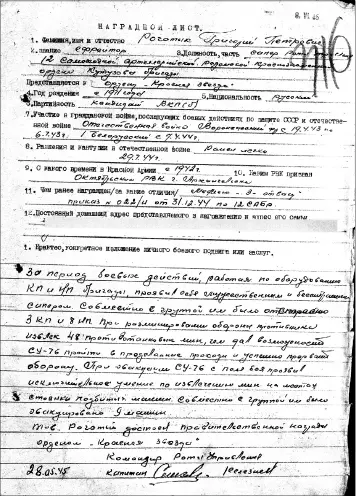 НАГРАДНОЙ ЛИСТ.
1. Фамилия, имя и отчество Рогатин Григорий Петрович
2. звание ефрейтор 3. Должность, часть сапер
12 Самоходной артиллерийской
ордена Кутузова бригады
Представляется к ордену "Красная звезда"
4. Год рождения 1911 года 5. Национальность русский
6. Партийность Кандидат ВКП(б)
7. Участие в гражданской войне, последующих боевых действиях по защите СССР и отечественной войне Отечественная война Воронежский с 19.4.43 по
6.7.43г. 1 Белорусский с 7.4.44г.
8. Ранения и контузии в отечественной войне Ранен легко
29.7.44г.
9. С какого времени в Красной Армии с 1942г 10. Каким РВК призван
Октябрьским РВК г. Архангельска
11. Чем ранее награжден /за какие отличия/ Медалью "За отвагу"
приказ № 022/н от 31.12.44 по 12 САБР.
12. Постоянный домашний адрес представляемого к награждению и адрес его семьи
1. Краткое, конкретное изложение личного боевого подвига или заслуг.
За период боевых действий, работая по оборудованию
КП и НП бригады проявил себя мужественным и бесстрашным
сапером. Совместно с группой им было
3 КП и 8 НП. При разминировании обороны противника
извлек 48 противотанковых мин, чем дал возможность
СУ-76 пройти в проделанные проходы и успешно прорвать
оборону. При эвакуации СУ-76 с поля боя проявил
исключительное умение по извлечению мин на местах
стоянки подбитых машин. Совместно с группой им было
эвакуировано 9 машин.
Тов. Рогатин достоин правительственной награды
орденом "Красная звезда"
Командир Роты Управления
28.05.45 капитан